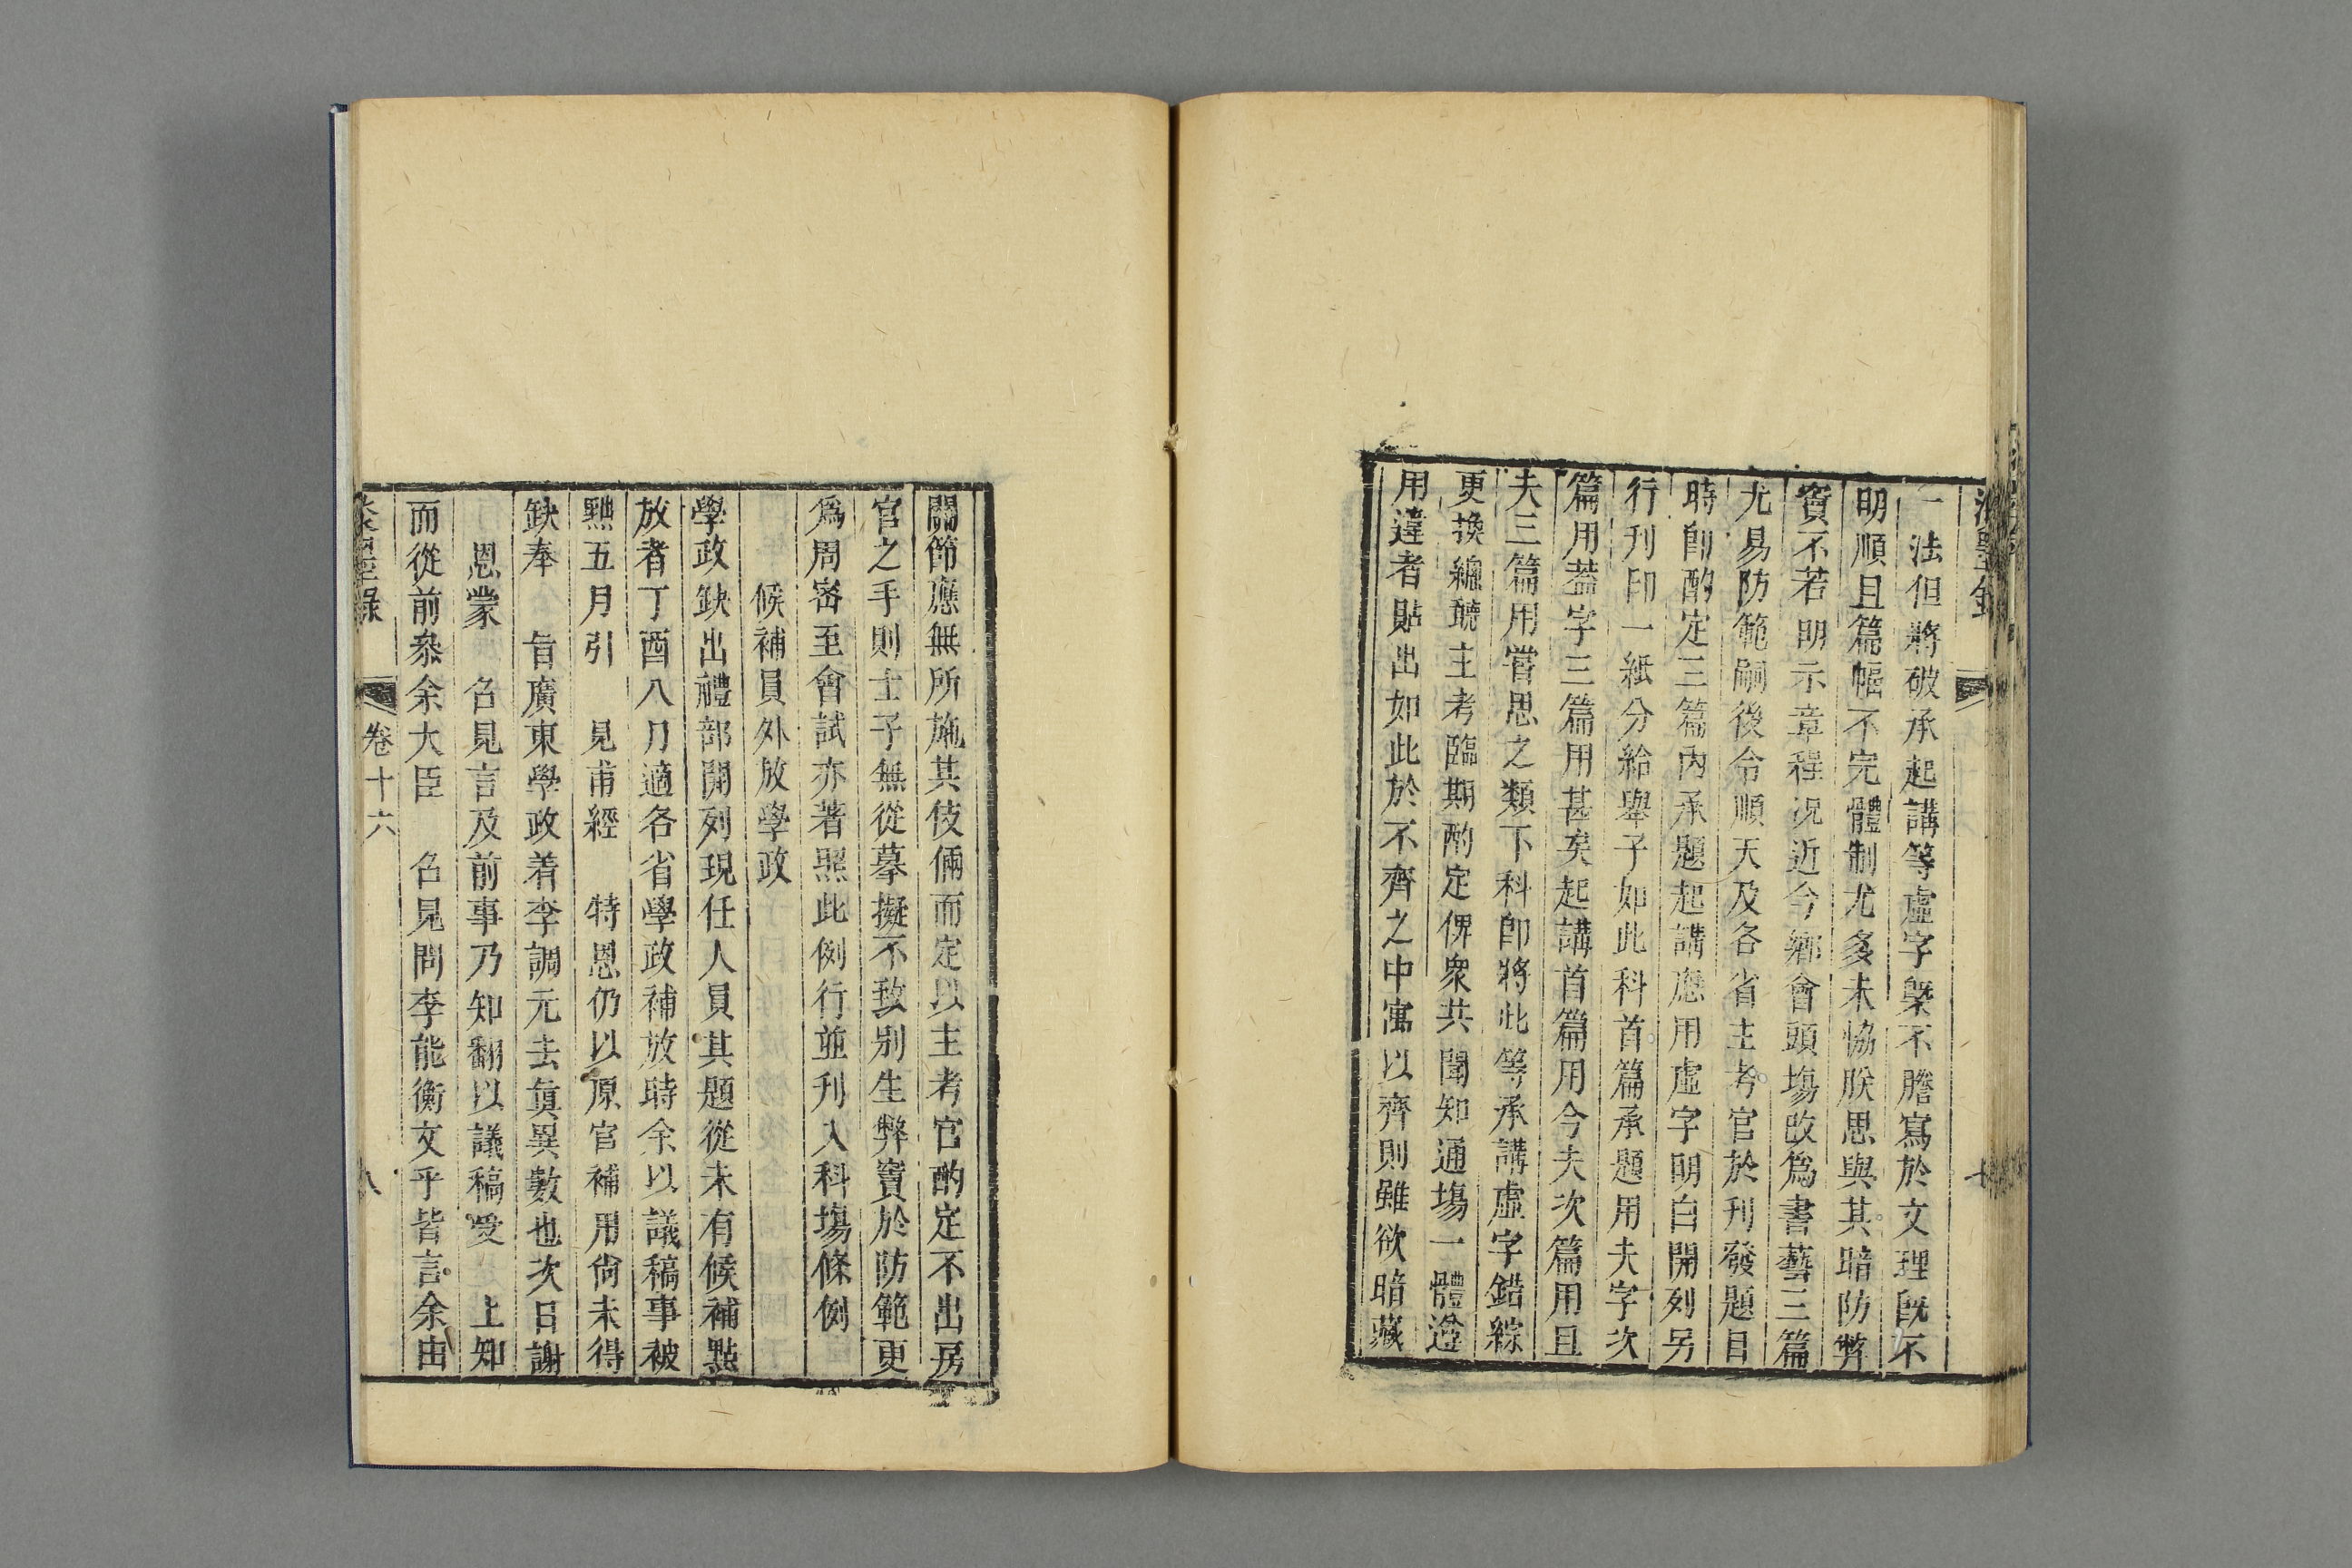 一法但將破承起講等虛字槩不謄寫於文理旣不
明順且篇幅不完體制尤多未恊朕思與其暗防弊
竇不若明示章程况近今鄉會頭塲改爲書藝三篇
尤易防範嗣後令順天及各省主考官於刋發題目
時卽酌定三篇內承題起講應用虛字明白開列另
行刋印一紙分給舉子如此科首篇承題用夫字次
篇用葢字三篇用甚矣起講首篇用今夫次篇用且
夫三篇用嘗思之類下科卽將此等承講虛字錯綜
更換總聽主考臨期酌定俾衆共聞知通塲一體遵
用違者貼出如此於不齊之中寓以齊則雖欲暗藏
關節應無所施其伎倆而定以主考官酌定不出房
官之手則士子無從摹擬不致别生弊竇於防範更
爲周密至會試亦著照此例行並刋入科塲條例
候補員外放學政
學政缺出禮部開列現任人員其題從未有候補點
放者丁酉八月適各省學政補放時余以議稿事被
黜五月引 見甫經 特恩仍以原官補用尙未得
缺奉 旨廣東學政着李調元去眞異數也次日謝
恩蒙 召見言及前事乃知翻以議稿受 上知
而從前叅余大臣 召見問李能衡文乎皆言余由
卷十六
八